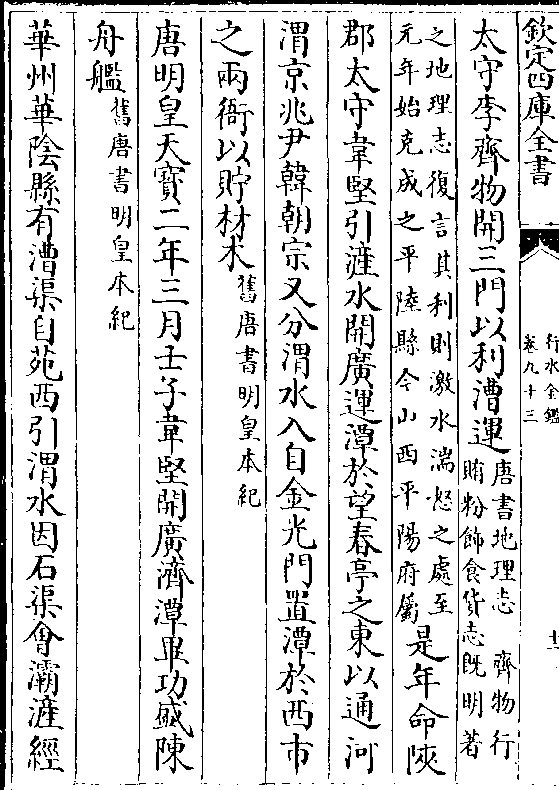 欽定四庫全書
行水金鑑
卷九十三
十一
太守李齊物開三門以利漕運唐書地理志 齊物行
賄粉飾食貨志既明著
之地理志復言其利則激水湍怒之處至
元年始克成之平陸縣今山西平陽府屬是年命陝
郡太守韋堅引滻水開廣運潭於望春亭之東以通河
渭京兆尹韓朝宗又分渭水入自金光門置潭於西市
之兩衙以貯材木舊唐書明皇本紀
唐明皇天寶二年三月壬子韋堅開廣濟潭畢功盛陳
舟艦舊唐書明皇本紀
華州華陰縣有漕渠自苑西引渭水因石渠會灞滻經